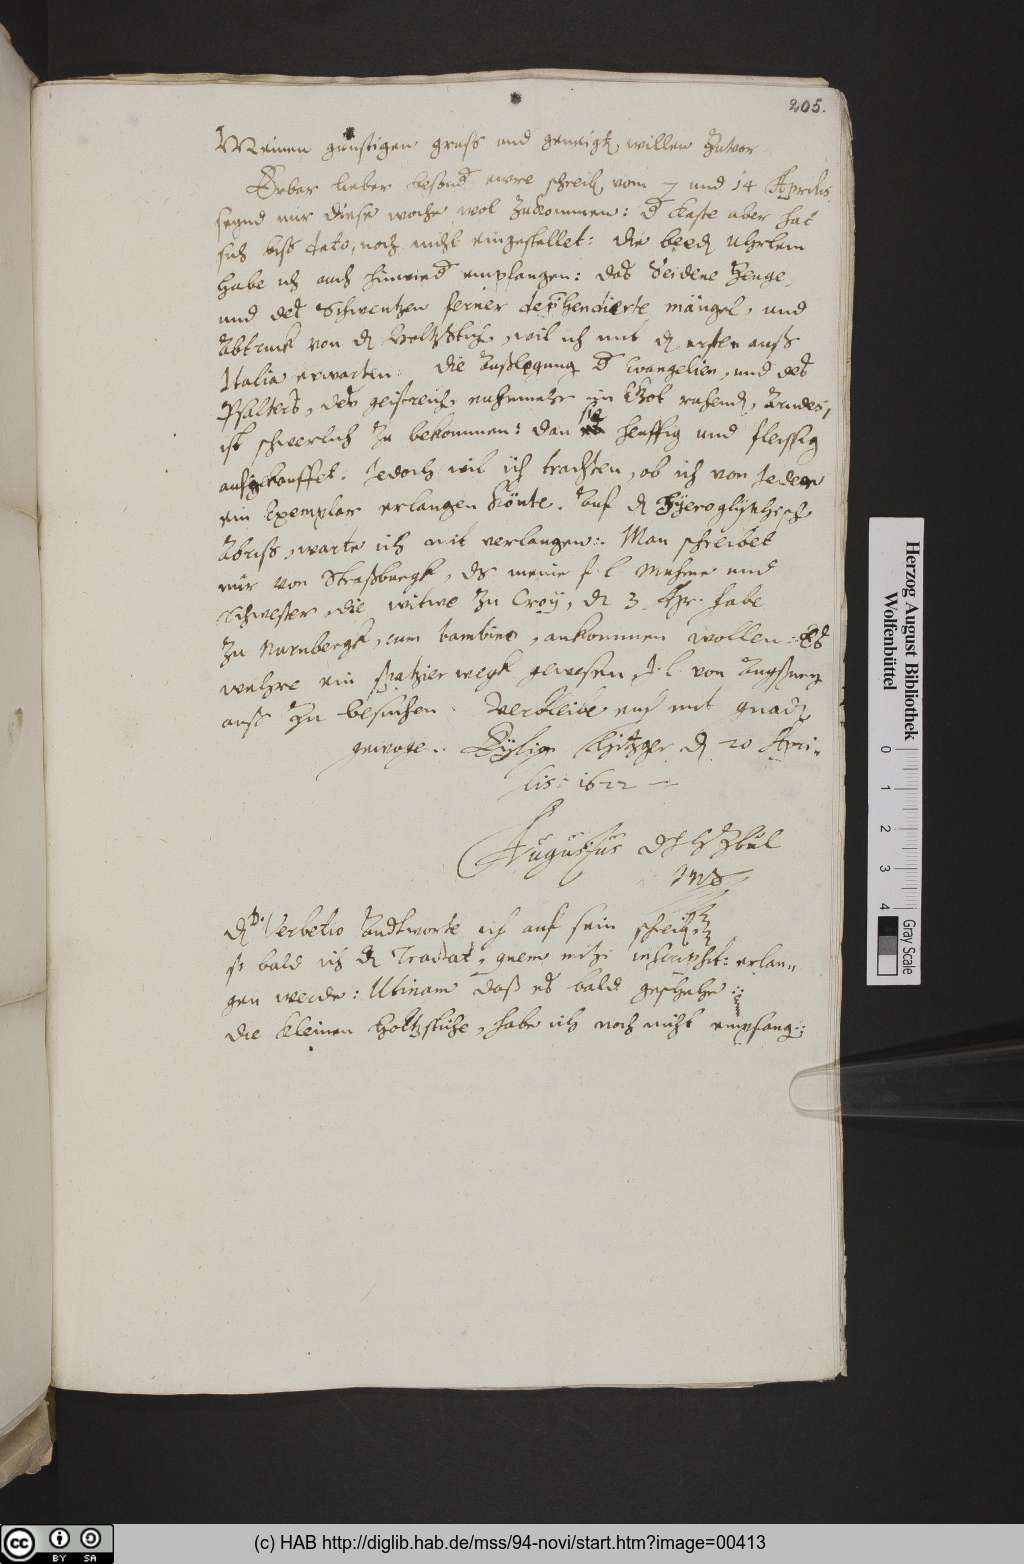 205.
Meinen günstigen gruß und geneigt willen zuvor
Erbar lieber besond ewre schreib vom 7 und 14 Aprilis
seynd mir diese woche wol zukommen: d kaste aber hat
sich biß dato, noch nicht eingestellet: die beed Uhrlein
habe ich auch hinwied empfangen: das Seidene Zeuge,
und des Schwentzen ferner dephendierte mängel, und
Abtruck von d holtzstich, wil ich mit d ersten auß
Italia erwarten: die Außlegung d Evangelien, und des
Psalters, des geistreich nuhnmehr in Got ruhend, Arndes,
ist schwerlich zu bekommen: dan sie heuffig und fleissig
aufgekauffet. Jedoch wil ich trachten, ob ich von Jedem
ein Exemplar erlangen könte. Auf d Hyeroglyphisch
Abriss, warte ich mit verlangen: Man schreibet
mir von Straßburgk, ds meine f. l. Muhme und
Schwester, die witwe zu Croÿ, d 3. Apr. habe
zu Nurnbergk, cum bambino, ankommen wollen: Es
wehre ein spatzier wegk gewesen, J. l. von Augspurg
auß zu besuchen. Verbleibe euch mit gnad
gewoge. Eÿlig Hitzger d 20 Apri-
lis: 1622
Augustus DJHZBUL
mp
D D. Verbetio Andtworte ich auf sein schreib
so bald ich d Tractat, quem mihi inscripsit: erlan-
gen werde: Utinam daß es bald geschehe:
die kleinen holtzstiche, habe ich noch nicht empfang:
Herzog August Bibliothek
Wolfenbüttel
0 1 2 3 4
Gray Scale
cc BY SA
(c) HAB http://diglib.hab.de/mss/94-novi/start.htm?image=00413